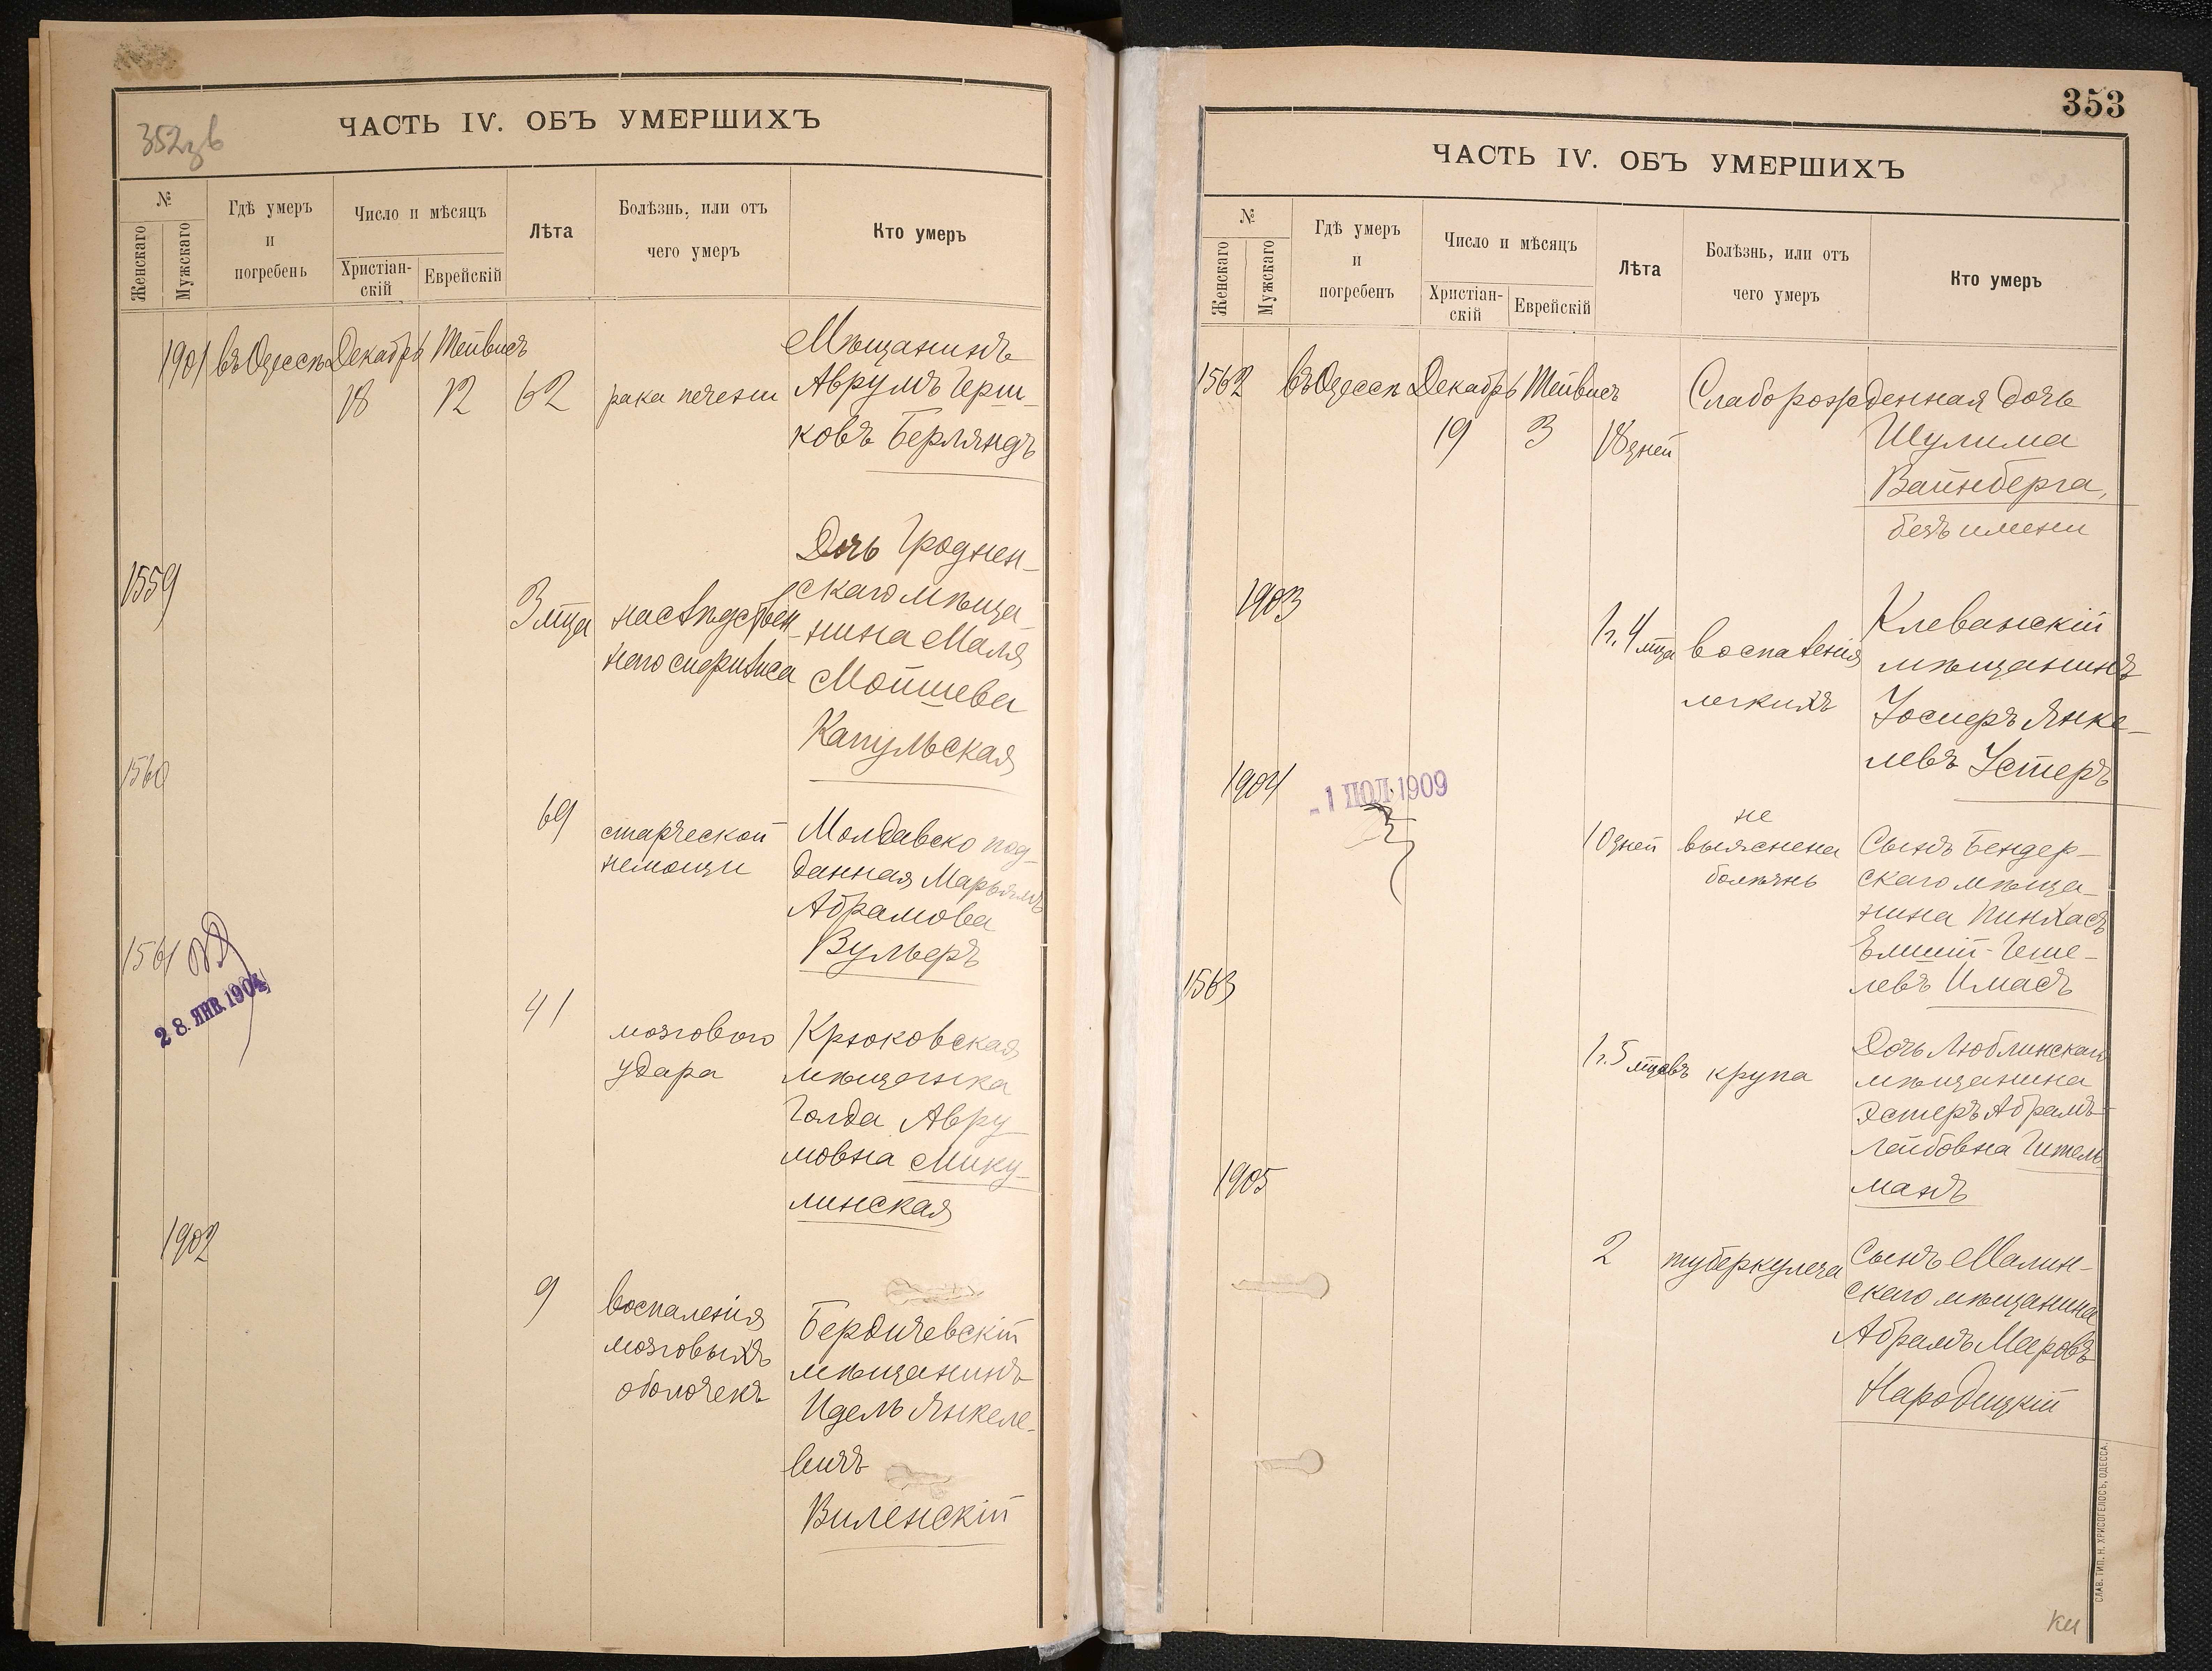 352 зв
ЧАСТЬ IV. ОБЪ УМЕРШИХЪ
№
Женскаго
Мужскаго
Гдѣ умеръ
и
погребенъ
Число и мѣсяцъ
Христіан-
скій
Еврейскій
Лѣта
Болѣзнь, или отъ
чего умеръ
Кто умеръ
1901 въ Одессѣ Декабрь Тейвисъ
18 12 62 рака печени
Мѣщанинъ
Аврумъ Герш-
ковъ Берляндъ
1559
3 мца наслѣдствен-
наго сифилиса
Дочь Гроднен-
скаго мѣща-
нина Маля
Мошева
Капульская
1560
69 старческой
немощи
Молдавско под-
данная Марьямъ
Абрамова
Вульеръ
1561
28. ЯНВ. 1904
41 мозгового
удара
Крюковская
мѣщанка
Голда Авру-
мовна Мику-
линская
1902
9 воспаленія
мозговыхъ
оболочекъ
Бердичевскій
мѣщанинъ
Идель Янкеле-
вичъ
Виленскій
353
ЧАСТЬ IV. ОБЪ УМЕРШИХЪ
№
Женскаго
Мужскаго
Гдѣ умеръ
и
погребенъ
Число и мѣсяцъ
Христіан-
скій
Еврейскій
Лѣта
Болѣзнь, или отъ
чего умеръ
Кто умеръ
1562 въ Одессѣ Декабрь Тейвисъ
19 3 18 дней
Слаборожденная дочь
Шулима
Вайнберга,
безъ имени
1903
1 г. 4 мца воспаленія
легкихъ
Клеванскій
мѣщанинъ
Іосперъ Янке-
левъ Устеръ
1904
- 1 ІЮЛ. 1909
10 дней
не
выяснена
болѣзнь
Сынъ Бендер-
скаго мѣща-
нина Пинхасъ
Геше-
левъ Имасъ
1563
1 г. 5 мцовъ крупа
Дочь Люблинскаго
мѣщанина
Эстеръ Абрамъ-
Лейбовна Гитель-
манъ
1905
2 туберкулеза
Сынъ Малин-
скаго мѣщанина
Абрамъ Меровъ
Народицкій
СЛАВ. ТИП. Н. ХРИСОГЕЛОСЪ, ОДЕССА.